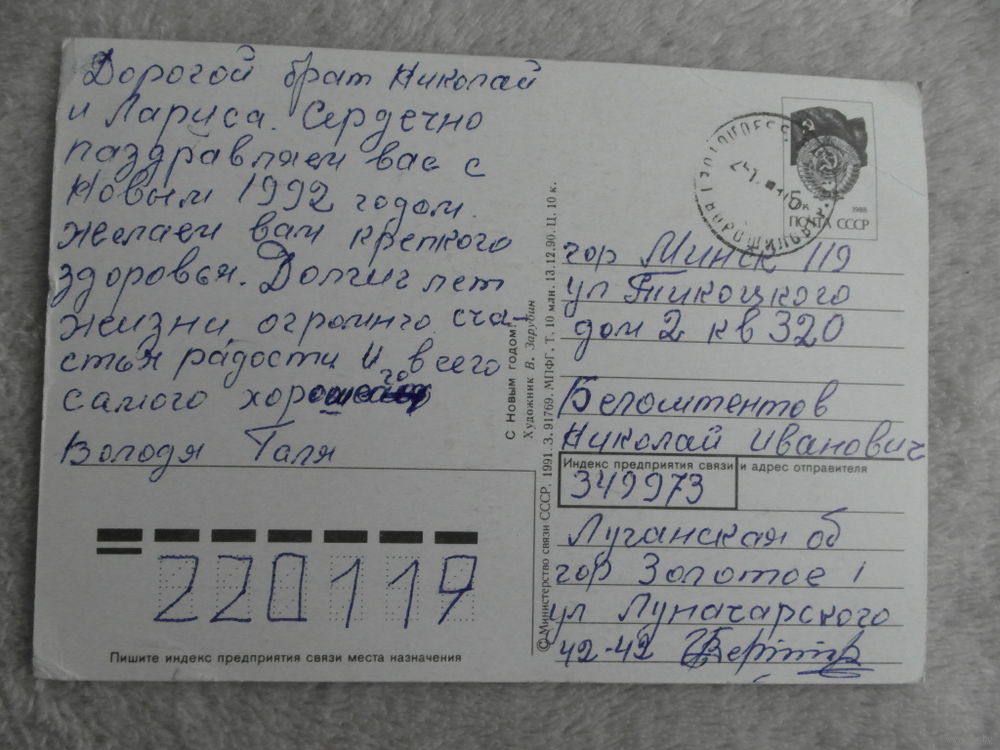 Дорогой брат Николай
и Лариса. Сердечно
паздравляем вас с
Новым 1992 годом
желаем вам крепкого
здоровья. Долгиг лет
жизни, огромнго сча-
стья радости и всего
самого хорошего
Володя Галя
ПОЧТА СССР
1988
гор Минск 119
ул Тикоцкого
дом 2 кв 320
Белоштентов
Николай Иванович
Индекс предприятия связи и адрес отправителя
349973
Луганская об
гор Золотое 1
ул Луначарского
42-42
220119
Пишите индекс предприятия связи места назначения
С Новым годом!
Художник В. Зарубин
© Министерство связи СССР, 1991. З. 91769. МПФГ. Т. 10 млн. 13.12.90. Ц. 10 к.